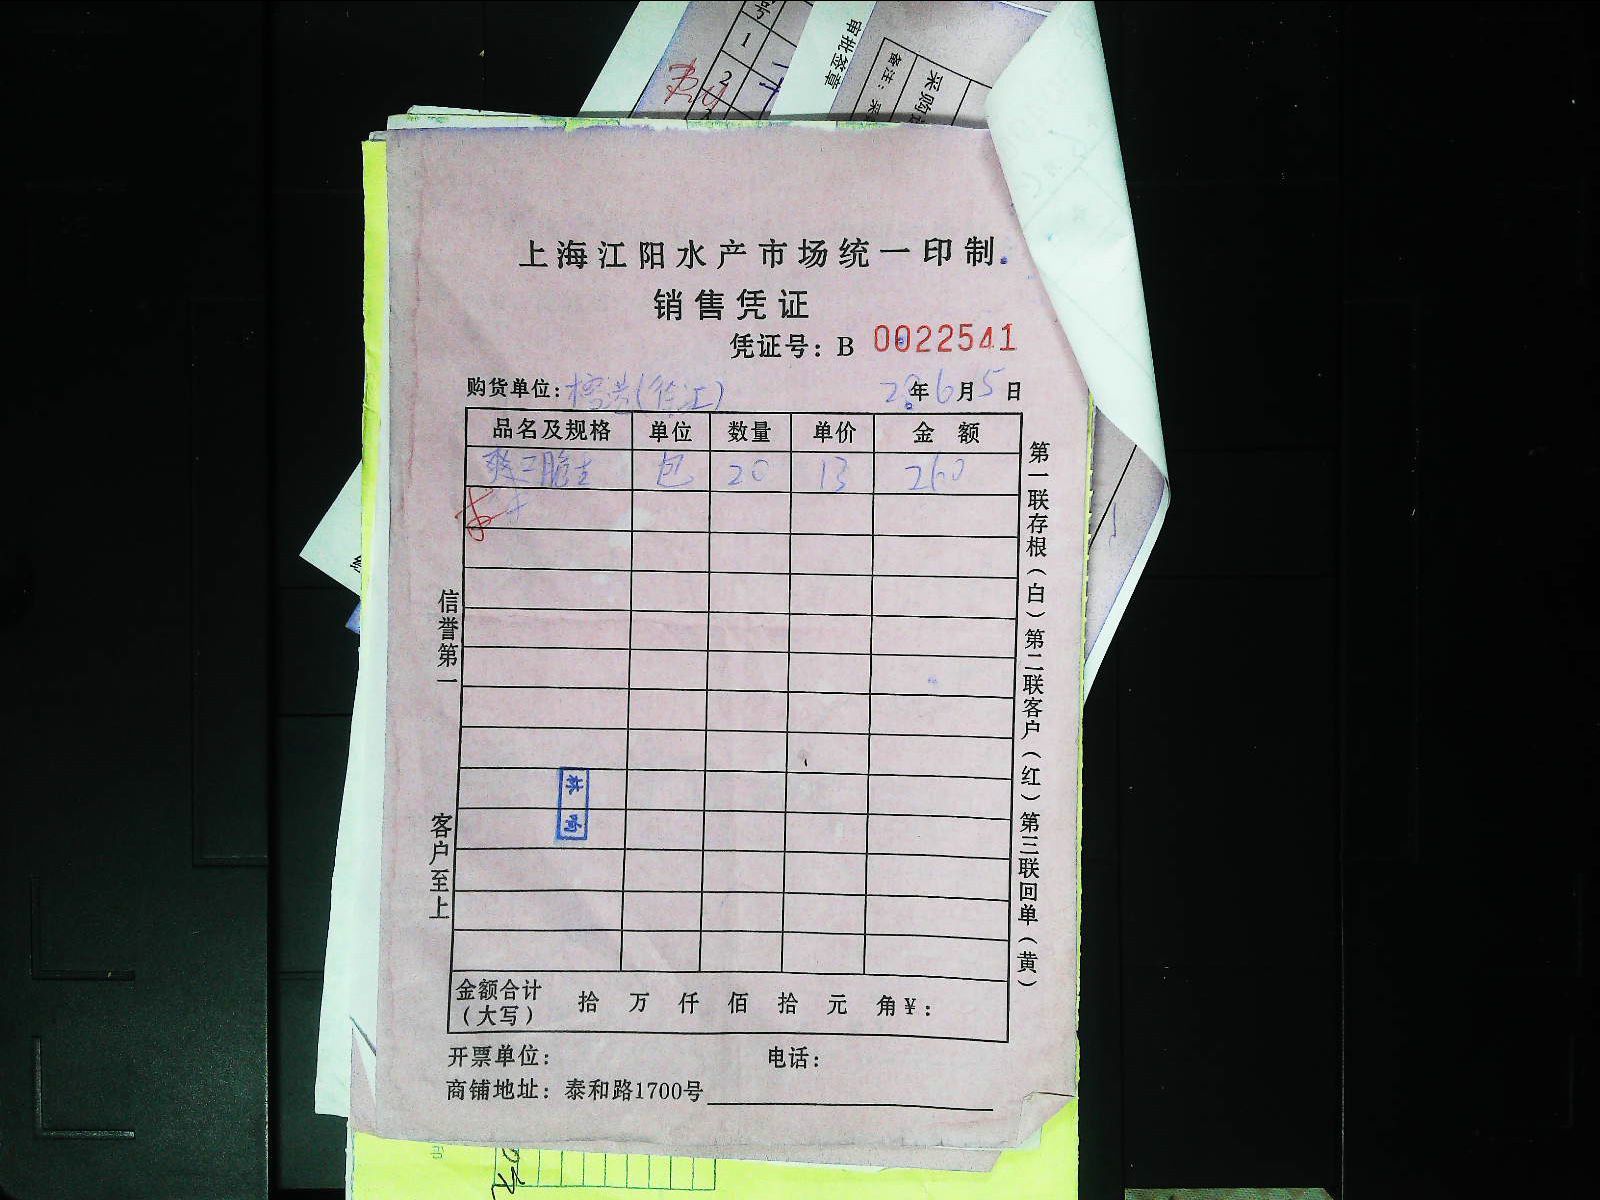 上海江阳水产市场统一印制
销售凭证
凭证号：B 0022541
购货单位： 年6月5日
品名及规格 单位 数量 单价 金额
包 20 13 260
信誉第一
客户至上
第一联存根（白）第二联客户（红）第三联回单（黄）
金额合计（大写） 拾 万 仟 佰 拾 元 角¥：
开票单位： 电话：
商铺地址：泰和路1700号
号
1
2
审批签章
备注：采
采购